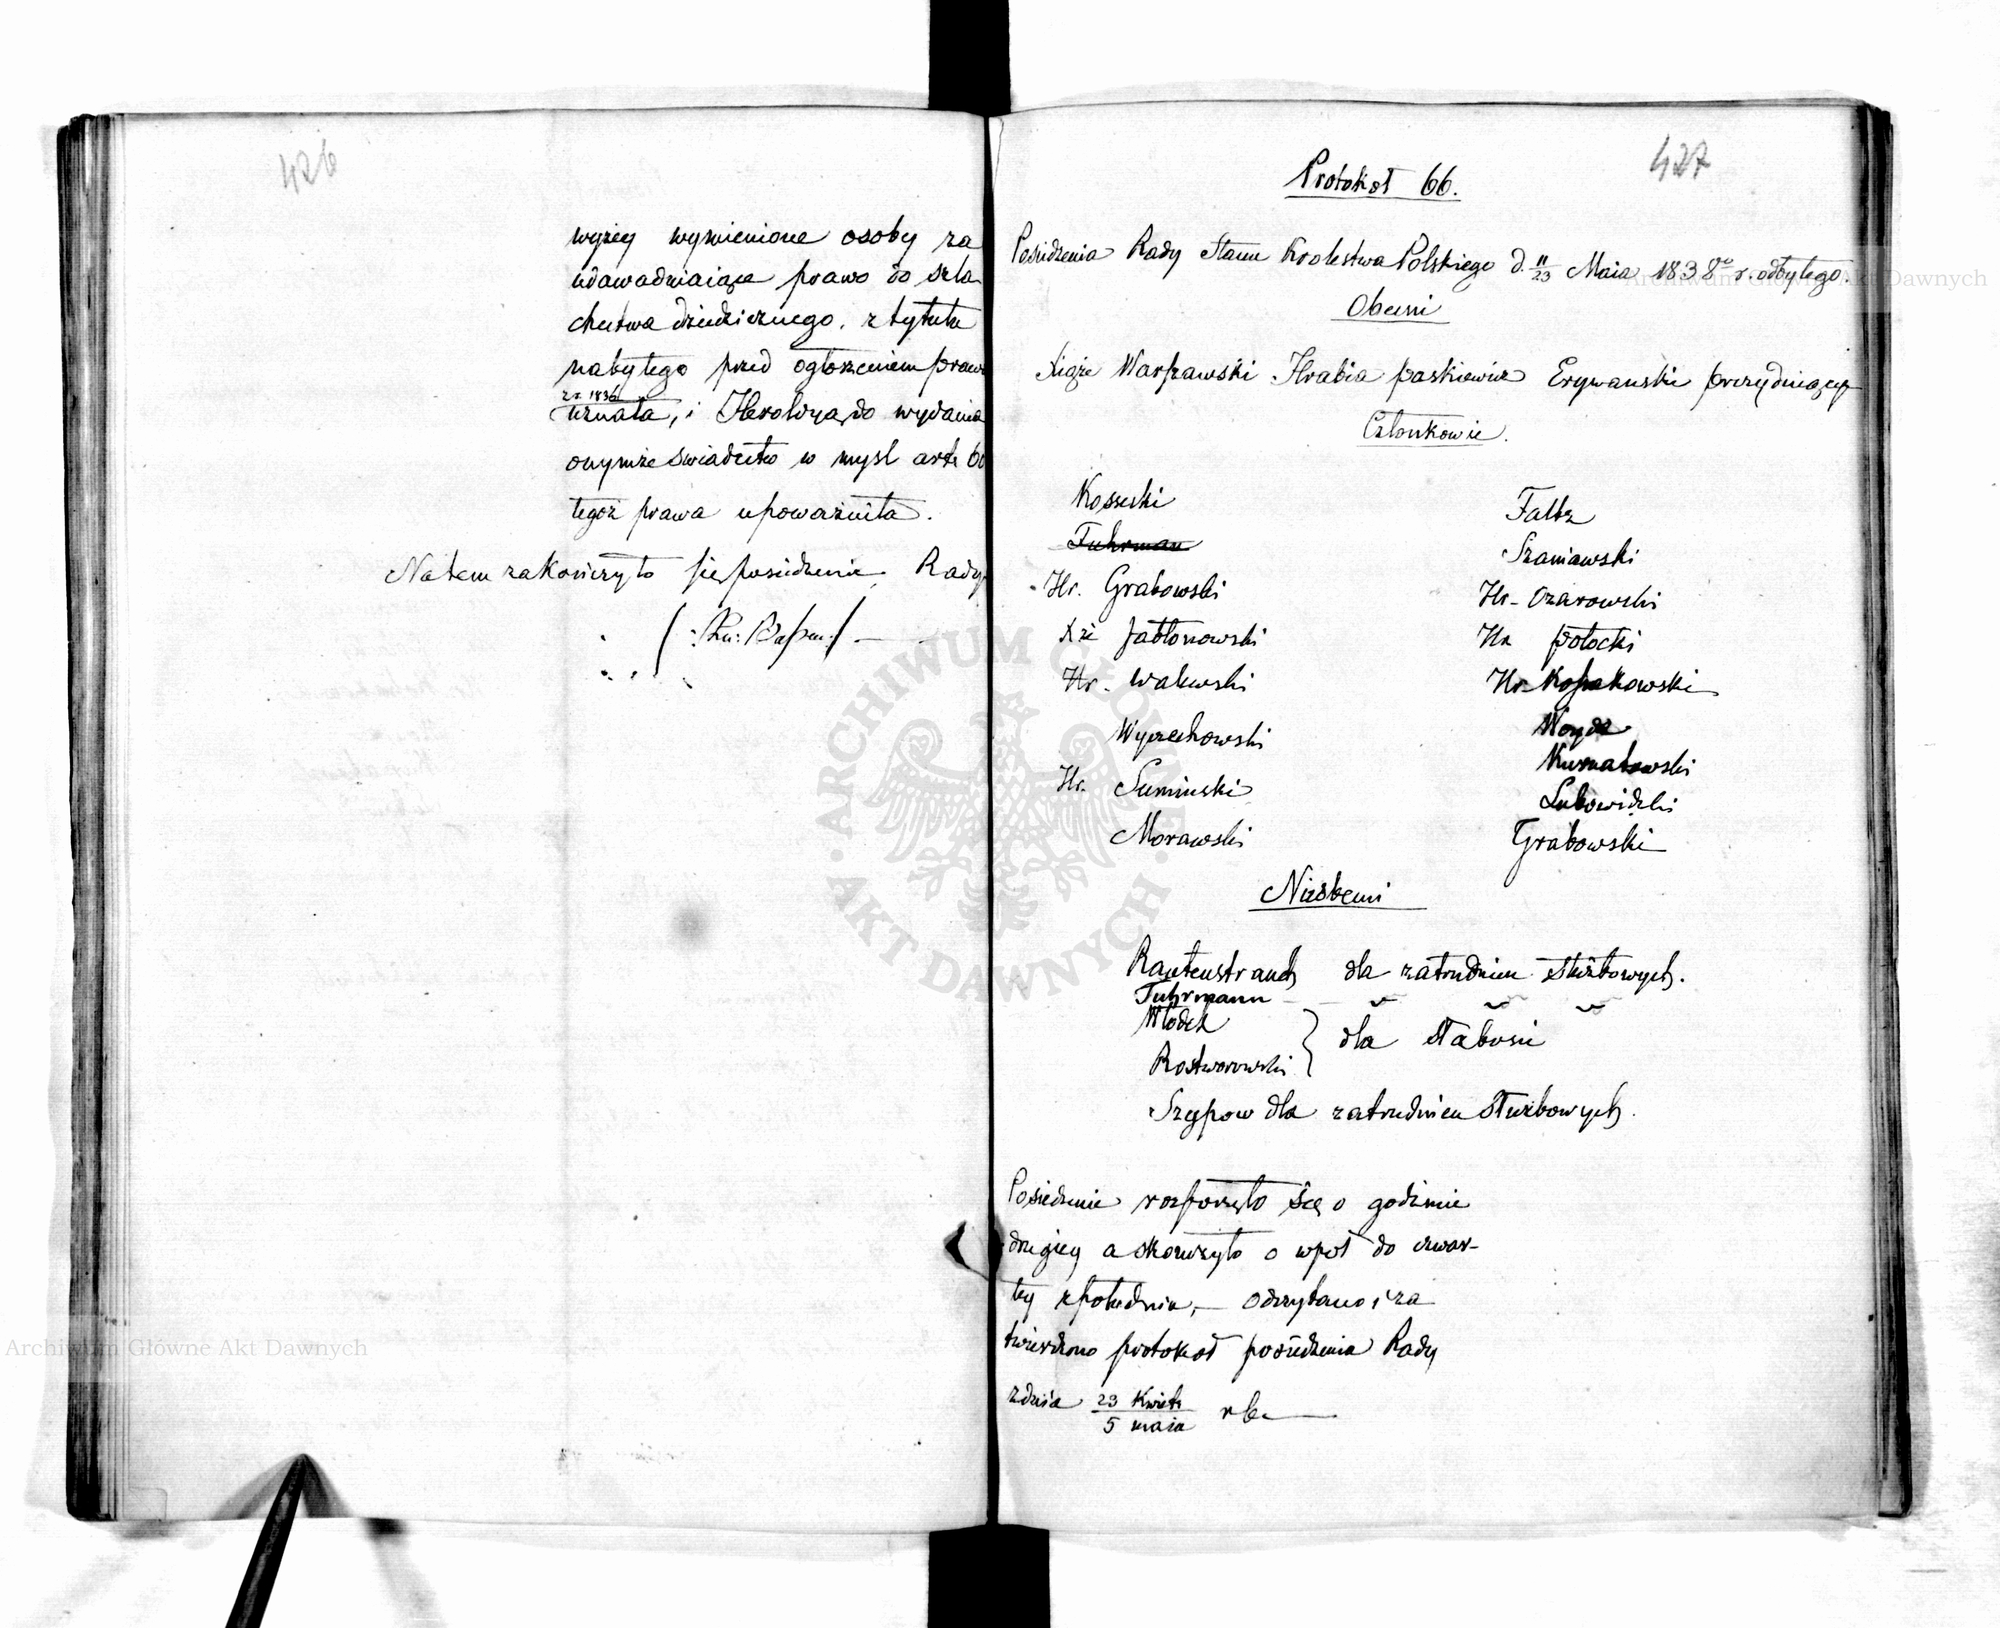 426
wyżey wymienione osoby za
udawadniaiące prawo do szla
chectwa dziedzicznego, z tytułu
nabytego przed ogłoszeniem prawa
z r. 1836
uznała, i Heroldyą do wydania
onymże świadectw w myśl art. 60
tegoż prawa upoważniła.
Na tem zakończyło się posiedzenie Rady
427
Protokół 66.
Posiedzenia Rady Stanu Krolestwa Polskiego d. 11/23 Maia 1838go r. odbytego.
Obecni
Xiąże Warszawski Hrabia Paskiewicz Erywanski prezyduiący
Członkowie.
Kossecki
Fuhrman
Hr. Grabowski
Xże Jabłonowski
Hr. Walewski
Wyczechowski
Hr. Suminski
Morawski
Faltz
Szaniawski
Hr. Ożarowski
Hr. Potocki
Hr. Kossakowski
Woyda
Kurnatowski
Lubowidzki
Grabowski
Nieobecni
Rautenstrauch dla zatrudnien służbowych.
Fuhrmann — " " "
Włodek
Rostworowski } dla słabości
Szypow dla zatrudnien służbowych.
Posiedzenie rozpoczęło się o godzinie
drugiey a skończyło o wpół do czwar-
tey z południa, — odczytano i za
twierdzono protokół posiedzenia Rady
z dnia 23 Kwiet/5 maia r b. —
ARCHIWUM GŁÓWNE AKT DAWNYCH
Archiwum Główne Akt Dawnych
Archiwum Główne Akt Dawnych